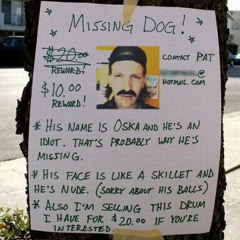 MISSING DOG!
$20.00
REWARD!
$10.00
REWARD!
CONTACT PAT
@
HOTMAIL.COM
* HIS NAME IS OSKA AND HE'S AN
IDIOT. THAT'S PROBABLY WHY HE'S
MISSING.
* HIS FACE IS LIKE A SKILLET AND
HE'S NUDE. (SORRY ABOUT HIS BALLS)
* ALSO I'M SELLING THIS DRUM
I HAVE FOR $20.00 IF YOU'RE
INTERESTED